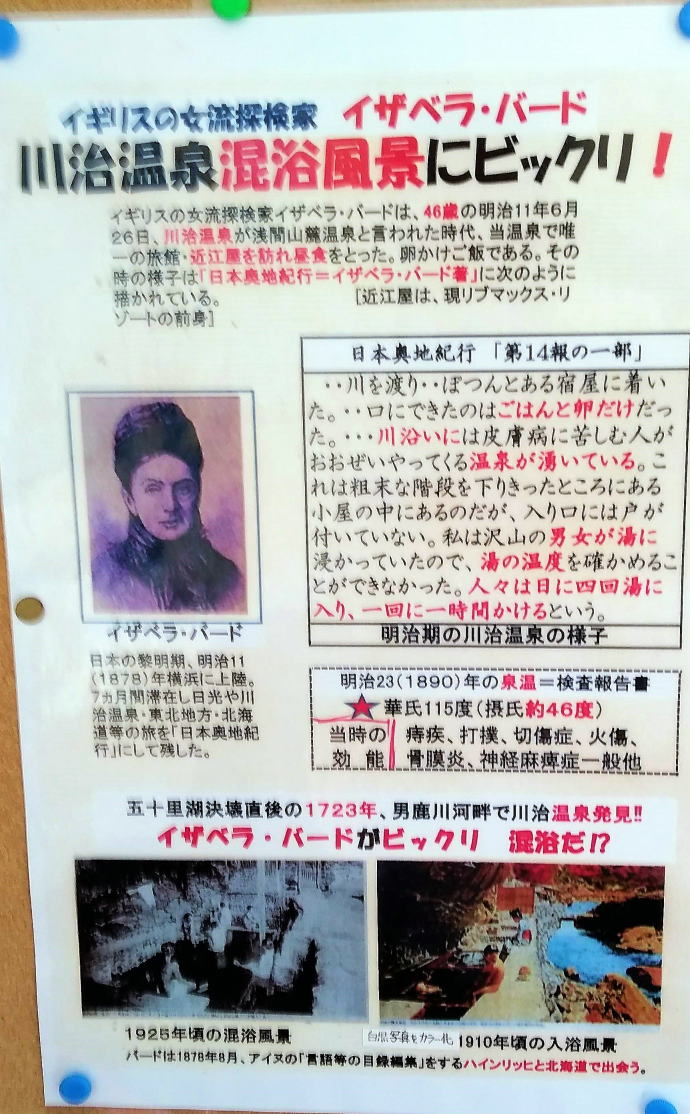 イギリスの女流探検家 イザベラ・バード
川治温泉混浴風景にビックリ！
イギリスの女流探検家イザベラ・バードは、46歳の明治11年6月
26日、川治温泉が浅間山麓温泉と言われた時代、当温泉で唯
一の旅館・近江屋を訪れ昼食をとった。卵かけご飯である。その
時の様子は「日本奥地紀行＝イザベラ・バード著」に次のように
描かれている。 [近江屋は、現リブマックス・リ
ゾートの前身]
日本奥地紀行 「第14報の一部」
・・川を渡り・・ぽつんとある宿屋に着い
た。・・口にできたのはごはんと卵だけだっ
た。・・・川沿いには皮膚病に苦しむ人が
おおぜいやってくる温泉が湧いている。こ
れは粗末な階段を下りきったところにある
小屋の中にあるのだが、入り口には戸が
付いていない。私は沢山の男女が湯に
浸かっていたので、湯の温度を確かめるこ
とができなかった。人々は日に四回湯に
入り、一回に一時間かけるという。
明治期の川治温泉の様子
イザベラ・バード
日本の黎明期、明治11
(1878)年横浜に上陸。
7ヵ月間滞在し日光や川
治温泉・東北地方・北海
道等の旅を「日本奥地紀
行」にして残した。
明治23(1890)年の泉温＝検査報告書
★華氏115度(摂氏約46度)
当時の 痔疾、打撲、切傷症、火傷、
効 能 骨膜炎、神経麻痺症一般他
五十里湖決壊直後の1723年、男鹿川河畔で川治温泉発見!!
イザベラ・バードがビックリ 混浴だ!?
1925年頃の混浴風景
白黒写真をカラー化 1910年頃の入浴風景
バードは1878年8月、アイヌの「言語等の目録編集」をするハインリッヒと北海道で出会う。